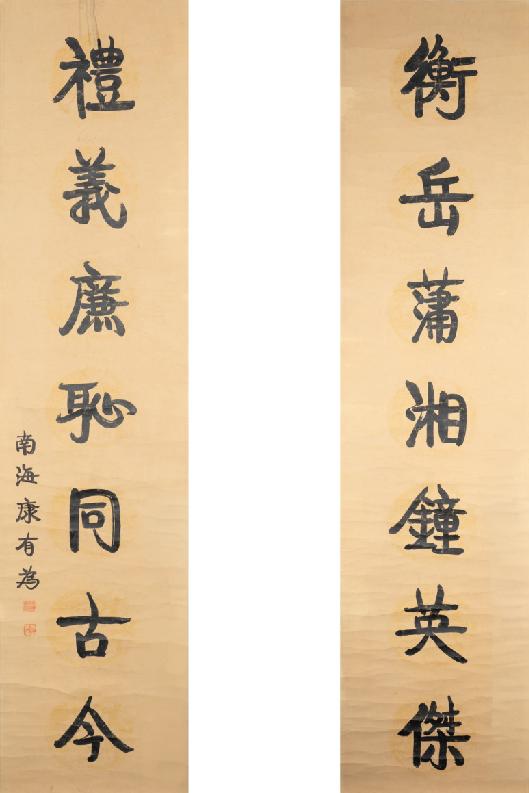 衡岳蒲湘鐘英傑
禮義廉恥同古今
南海康有為